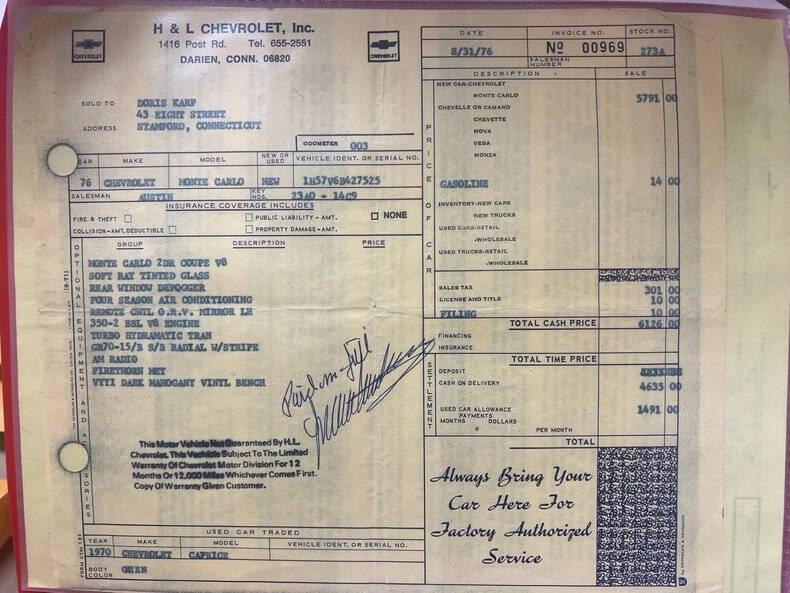 H & L CHEVROLET, Inc.
1416 Post Rd. Tel. 655-2551
DARIEN, CONN. 06820
CHEVROLET
CHEVROLET
DATE
INVOICE NO.
STOCK NO.
8/31/76
Nº 00969
273A
SALESMAN
NUMBER
DESCRIPTION
SALE
SOLD TO DORIS KARP
43 EIGHT STREET
ADDRESS STAMFORD, CONNECTICUT
ODOMETER 003
YEAR MAKE MODEL NEW OR USED VEHICLE IDENT. OR SERIAL NO.
76 CHEVROLET MONTE CARLO NEW 1H57V6B427525
SALESMAN AUSTIN KEY NOS. 23A0 - 14C9
INSURANCE COVERAGE INCLUDES
FIRE & THEFT PUBLIC LIABILITY - AMT. NONE
COLLISION-AMT. DEDUCTIBLE PROPERTY DAMAGE-AMT.
GROUP DESCRIPTION PRICE
OPTIONAL EQUIPMENT AND ACCESSORIES
MONTE CARLO 2DR COUPE V8
SOFT RAY TINTED GLASS
REAR WINDOW DEFOGGER
FOUR SEASON AIR CONDITIONING
REMOTE CNTL O.R.V. MIRROR LH
350-2 BBL V8 ENGINE
TURBO HYDRAMATIC TRAN
GR70-15/B S/B RADIAL W/STRIPE
AM RADIO
FIRETHORN MET
VYYI DARK MAHOGANY VINYL BENCH
Paid in full
This Motor Vehicle Not Guaranteed By H.L.
Chevrolet. This Vehicle Subject To The Limited
Warranty Of Chevrolet Motor Division For 12
Months Or 12,000 Miles Whichever Comes First.
Copy Of Warranty Given Customer.
USED CAR TRADED
YEAR MAKE MODEL VEHICLE IDENT. OR SERIAL NO.
1970 CHEVROLET CAPRICE
BODY COLOR GEEN
PRICE OF CAR
NEW CAR-CHEVROLET
MONTE CARLO 5791 00
CHEVELLE OR CAMARO
CHEVETTE
NOVA
VEGA
MONZA
GASOLINE 14 00
INVENTORY-NEW CARS
NEW TRUCKS
USED CARS-RETAIL
.WHOLESALE
USED TRUCKS-RETAIL
.WHOLESALE
SALES TAX 301 00
LICENSE AND TITLE 10 00
FILING 10 00
TOTAL CASH PRICE 6126 00
FINANCING
INSURANCE
TOTAL TIME PRICE
SETTLEMENT
DEPOSIT
CASH ON DELIVERY 4635 00
USED CAR ALLOWANCE 1491 00
PAYMENTS
MONTHS @ DOLLARS
PER MONTH
TOTAL
Always Bring Your
Car Here For
Factory Authorized
Service